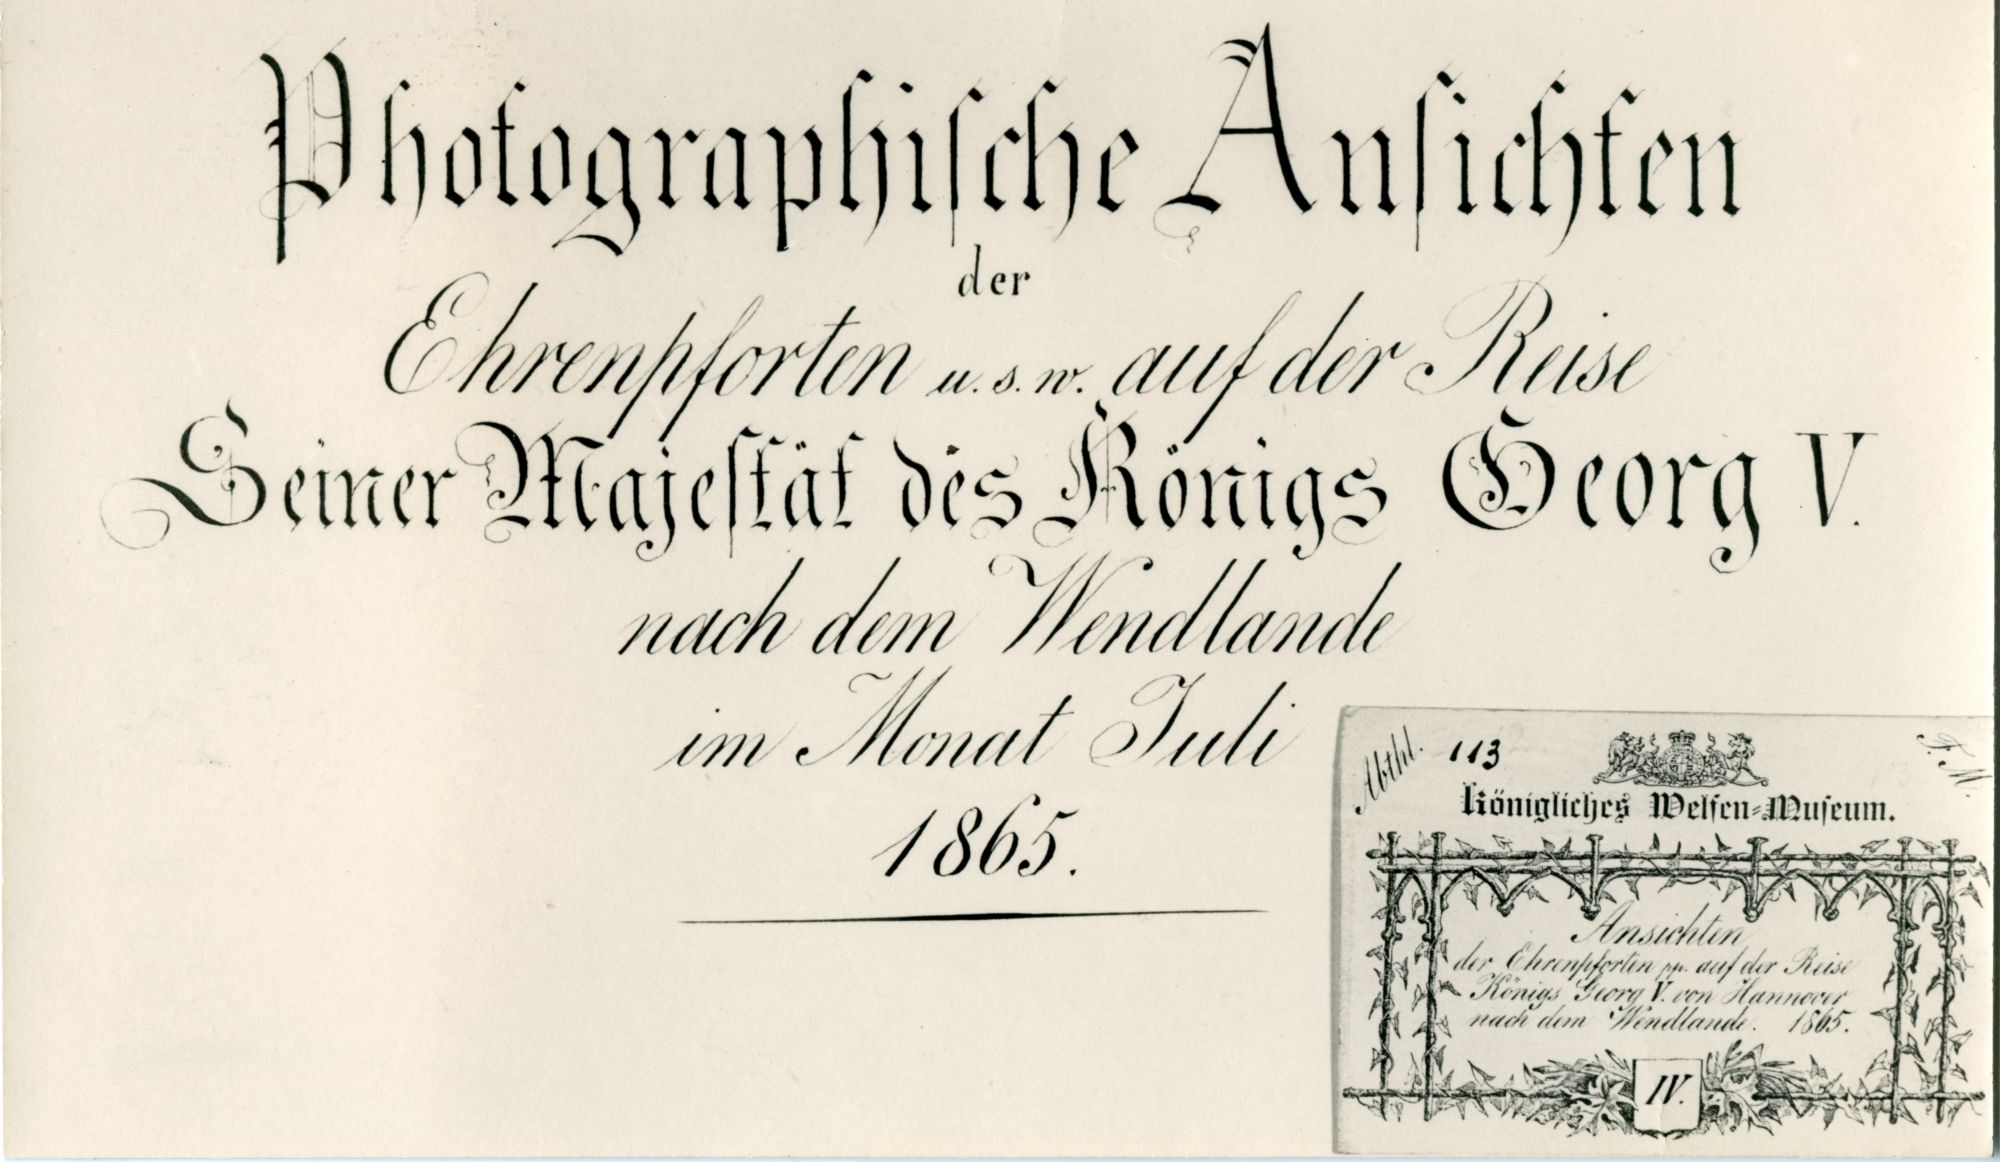 Photographische Ansichten
der
Ehrenpforten u. s. w. auf der Reise
Seiner Majestät des Königs Georg V.
nach dem Wendlande
im Monat Juli
1865.
Abthl. 113
F. M.
Königliches Welfen-Museum.
Ansichten
der Ehrenpforten pp. auf der Reise
Königs Georg V. von Hannover
nach dem Wendlande. 1865.
IV.